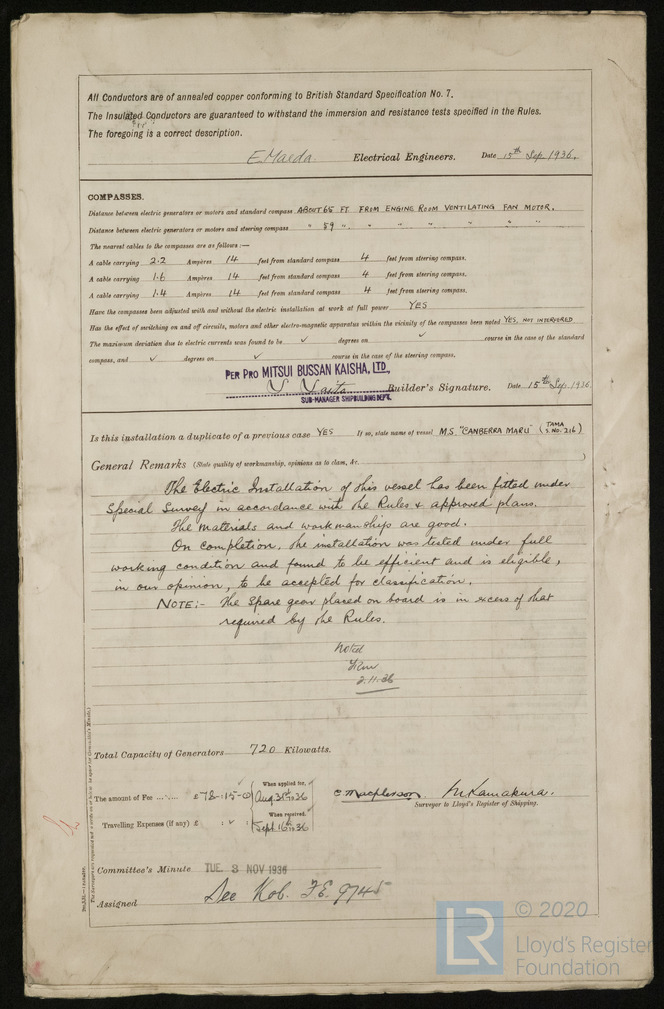 All Conductors are of annealed copper conforming to British Standard Specification No. 7.
The Insulated Conductors are guaranteed to withstand the immersion and resistance tests specified in the Rules.
The foregoing is a correct description.
E. Maeda. Electrical Engineers. Date 15th Sep. 1936.
COMPASSES.
Distance between electric generators or motors and standard compass ABOUT 65 FT FROM ENGINE ROOM VENTILATING FAN MOTOR.
Distance between electric generators or motors and steering compass " 59 " " " " " " "
The nearest cables to the compasses are as follows:—
A cable carrying 2.2 Ampères 14 feet from standard compass 4 feet from steering compass.
A cable carrying 1.6 Ampères 14 feet from standard compass 4 feet from steering compass.
A cable carrying 1.4 Ampères 14 feet from standard compass 4 feet from steering compass.
Have the compasses been adjusted with and without the electric installation at work at full power YES
Has the effect of switching on and off circuits, motors and other electro-magnetic apparatus within the vicinity of the compasses been noted YES, NOT INTERFORED
The maximum deviation due to electric currents was found to be ✓ degrees on ✓ course in the case of the standard
compass, and ✓ degrees on ✓ course in the case of the steering compass.
PER PRO MITSUI BUSSAN KAISHA, LTD.,
Builder's Signature. Date 15th Sep. 1936
SUB-MANAGER SHIPBUILDING DEPT.
Is this installation a duplicate of a previous case YES If so, state name of vessel M.S. "CANBERRA MARU" (TAMA S. NO. 216)
General Remarks (State quality of workmanship, opinions as to class, &c.)
The Electric Installation of this vessel has been fitted under
Special Survey in accordance with the Rules & approved plans.
The materials and workmanships are good.
On completion, the installation was tested under full
working condition and found to be efficient and is eligible,
in our opinion, to be accepted for classification.
NOTE:- The Spare gear placed on board is in excess of that
required by the Rules.
Noted
2.11.36
Total Capacity of Generators 720 Kilowatts.
The amount of Fee ... £ 78 : 15 - 0 When applied for, Aug 31st 1936
Travelling Expenses (if any) £ : ✓ : When received, Sept 16th 1936
C. Macpherson M. Kamakura.
Surveyor to Lloyd's Register of Shipping.
Committee's Minute TUE. 3 NOV 1936
Assigned See Kob. F.E. 9745
LR
© 2020
Lloyd's Register
Foundation